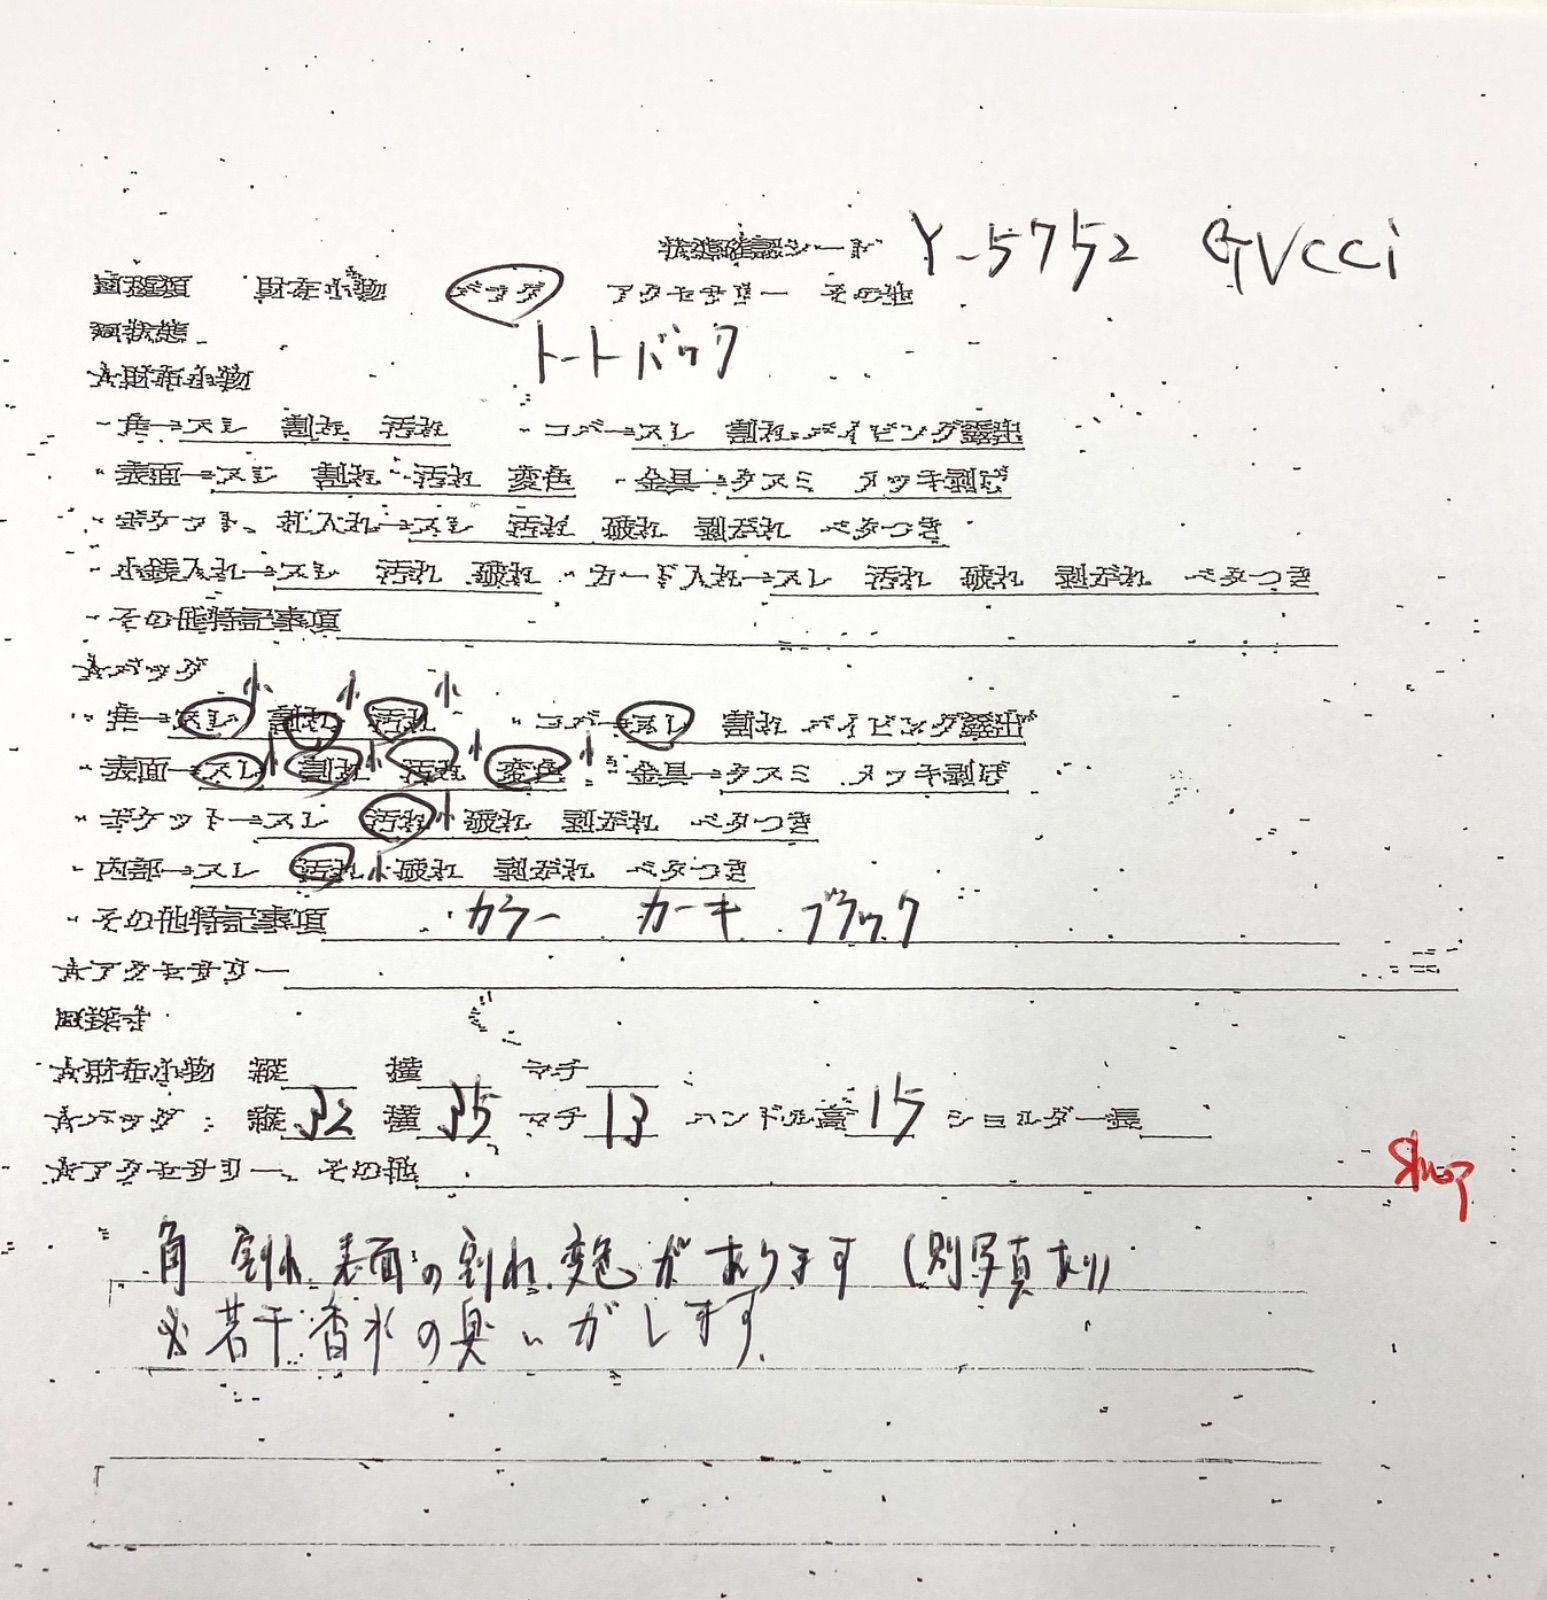 状態確認シート Y-5752 GUCCi
□種類 財布小物 バッグ アクセサリー その他
□状態 トートバック
☆財布小物
・角→スレ 割れ 汚れ ・コバ→スレ 割れ パイピング露出
・表面→スレ 割れ 汚れ 変色 ・金具→クスミ メッキ剥げ
・ポケット、札入れ→スレ 汚れ 破れ 剥がれ ベタつき
・小銭入れ→スレ 汚れ 破れ ・カード入れ→スレ 汚れ 破れ 剥がれ ベタつき
・その他特記事項
☆バッグ
・角→スレ小 割れ小 汚れ小 ・コバ→スレ 割れ パイピング露出
・表面→スレ小 割れ小 汚れ小 変色小 ・金具→クスミ メッキ剥げ
・ポケット→スレ 汚れ小 破れ 剥がれ ベタつき
・内部→スレ 汚れ小 破れ 剥がれ ベタつき
・その他特記事項 カラー カーキ ブラック
☆アクセサリー
□採寸
☆財布小物 縦 横 マチ
☆バッグ 縦32 横35 マチ13 ハンドル高15 ショルダー長
☆アクセサリー、その他
角割れ、表面の割れ、変色があります(別写真あり)
※若干香水の臭いがします。